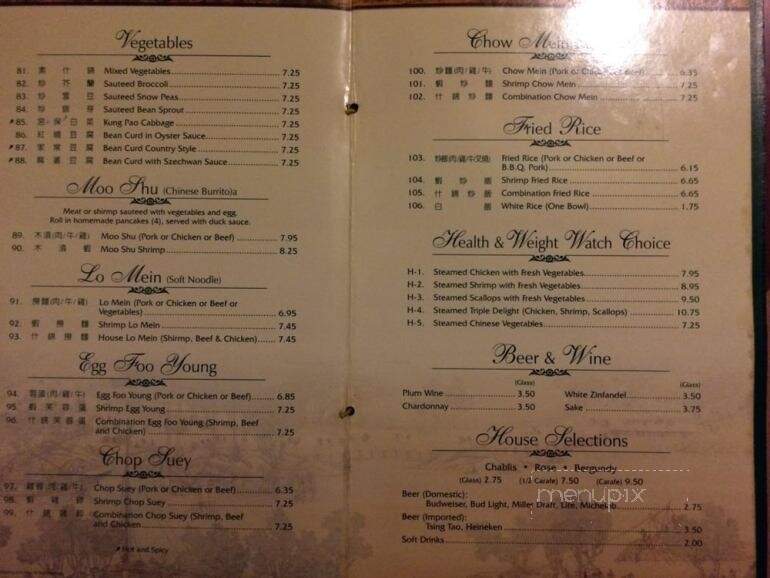 Vegetables
81. 素什錦 Mixed Vegetables 7.25
82. 炒芥蘭 Sauteed Broccoli 7.25
83. 炒雪豆 Sauteed Snow Peas 7.25
84. 炒銀芽 Sauteed Bean Sprout 7.25
85. 宮保白菜 Kung Pao Cabbage 7.25
86. 紅燒豆腐 Bean Curd in Oyster Sauce 7.25
87. 家常豆腐 Bean Curd Country Style 7.25
88. 麻婆豆腐 Bean Curd with Szechwan Sauce 7.25
Moo Shu (Chinese Burrito)a
Meat or shrimp sauteed with vegetables and egg.
Roll in homemade pancakes (4), served with duck sauce.
89. 木須(肉/牛/雞) Moo Shu (Pork or Chicken or Beef) 7.95
90. 木須蝦 Moo Shu Shrimp 8.25
Lo Mein (Soft Noodle)
91. 撈麵(肉/牛/雞) Lo Mein (Pork or Chicken or Beef or
Vegetables) 6.95
92. 蝦撈麵 Shrimp Lo Mein 7.45
93. 什錦撈麵 House Lo Mein (Shirmp, Beef & Chicken) 7.45
Egg Foo Young
94. 蓉蛋(肉/雞/牛) Egg Foo Young (Pork or Chicken or Beef) 6.85
95. 蝦芙蓉蛋 Shrimp Egg Young 7.25
96. 什錦芙蓉蛋 Combination Egg Foo Young (Shrimp, Beef
and Chicken) 7.25
Chop Suey
97. Chop Suey (Pork or Chicken or Beef) 6.35
98. Shrimp Chop Suey 7.25
99. Combination Chop Suey (Shrimp, Beef
and Chicken 7.25
Hot and Spicy
Chow Mein
100. 炒麵(肉/雞/牛) Chow Mein (Pork or Chicken or Beef) 6.35
101. 蝦炒麵 Shrimp Chow Mein 7.25
102. 什錦炒麵 Combination Chow Mein 7.25
Fried Rice
103. 炒飯(肉/雞/牛/叉燒) Fried Rice (Pork or Chicken or Beef or
B.B.Q. Pork) 6.15
104. 蝦炒飯 Shrimp Fried Rice 6.65
105. 什錦炒飯 Combination Fried Rice 6.65
106. 白飯 White Rice (One Bowl) 1.75
Health & Weight Watch Choice
H-1. Steamed Chicken with Fresh Vegetables 7.95
H-2. Steamed Shrimp with Fresh Vegetables 8.95
H-3. Steamed Scallops with Fresh Vegetables 9.50
H-4. Steamed Triple Delight (Chicken, Shrimp, Scallops) 10.75
H-5. Steamed Chinese Vegetables 7.25
Beer & Wine
(Glass) (Glass)
Plum Wine 3.50 White Zinfandel 3.50
Chardonnay 3.50 Sake 3.75
House Selections
Chablis • Rose • Bergundy
(Glass) 2.75 (1/2 Carafe) 7.50 (Carafe) 9.50
menupix
Beer (Domestic):
Budweiser, Bud Light, Miller Draft, Lite, Michelob 2.75
Beer (Imported):
Tsing Tao, Heineken 3.50
Soft Drinks 2.00